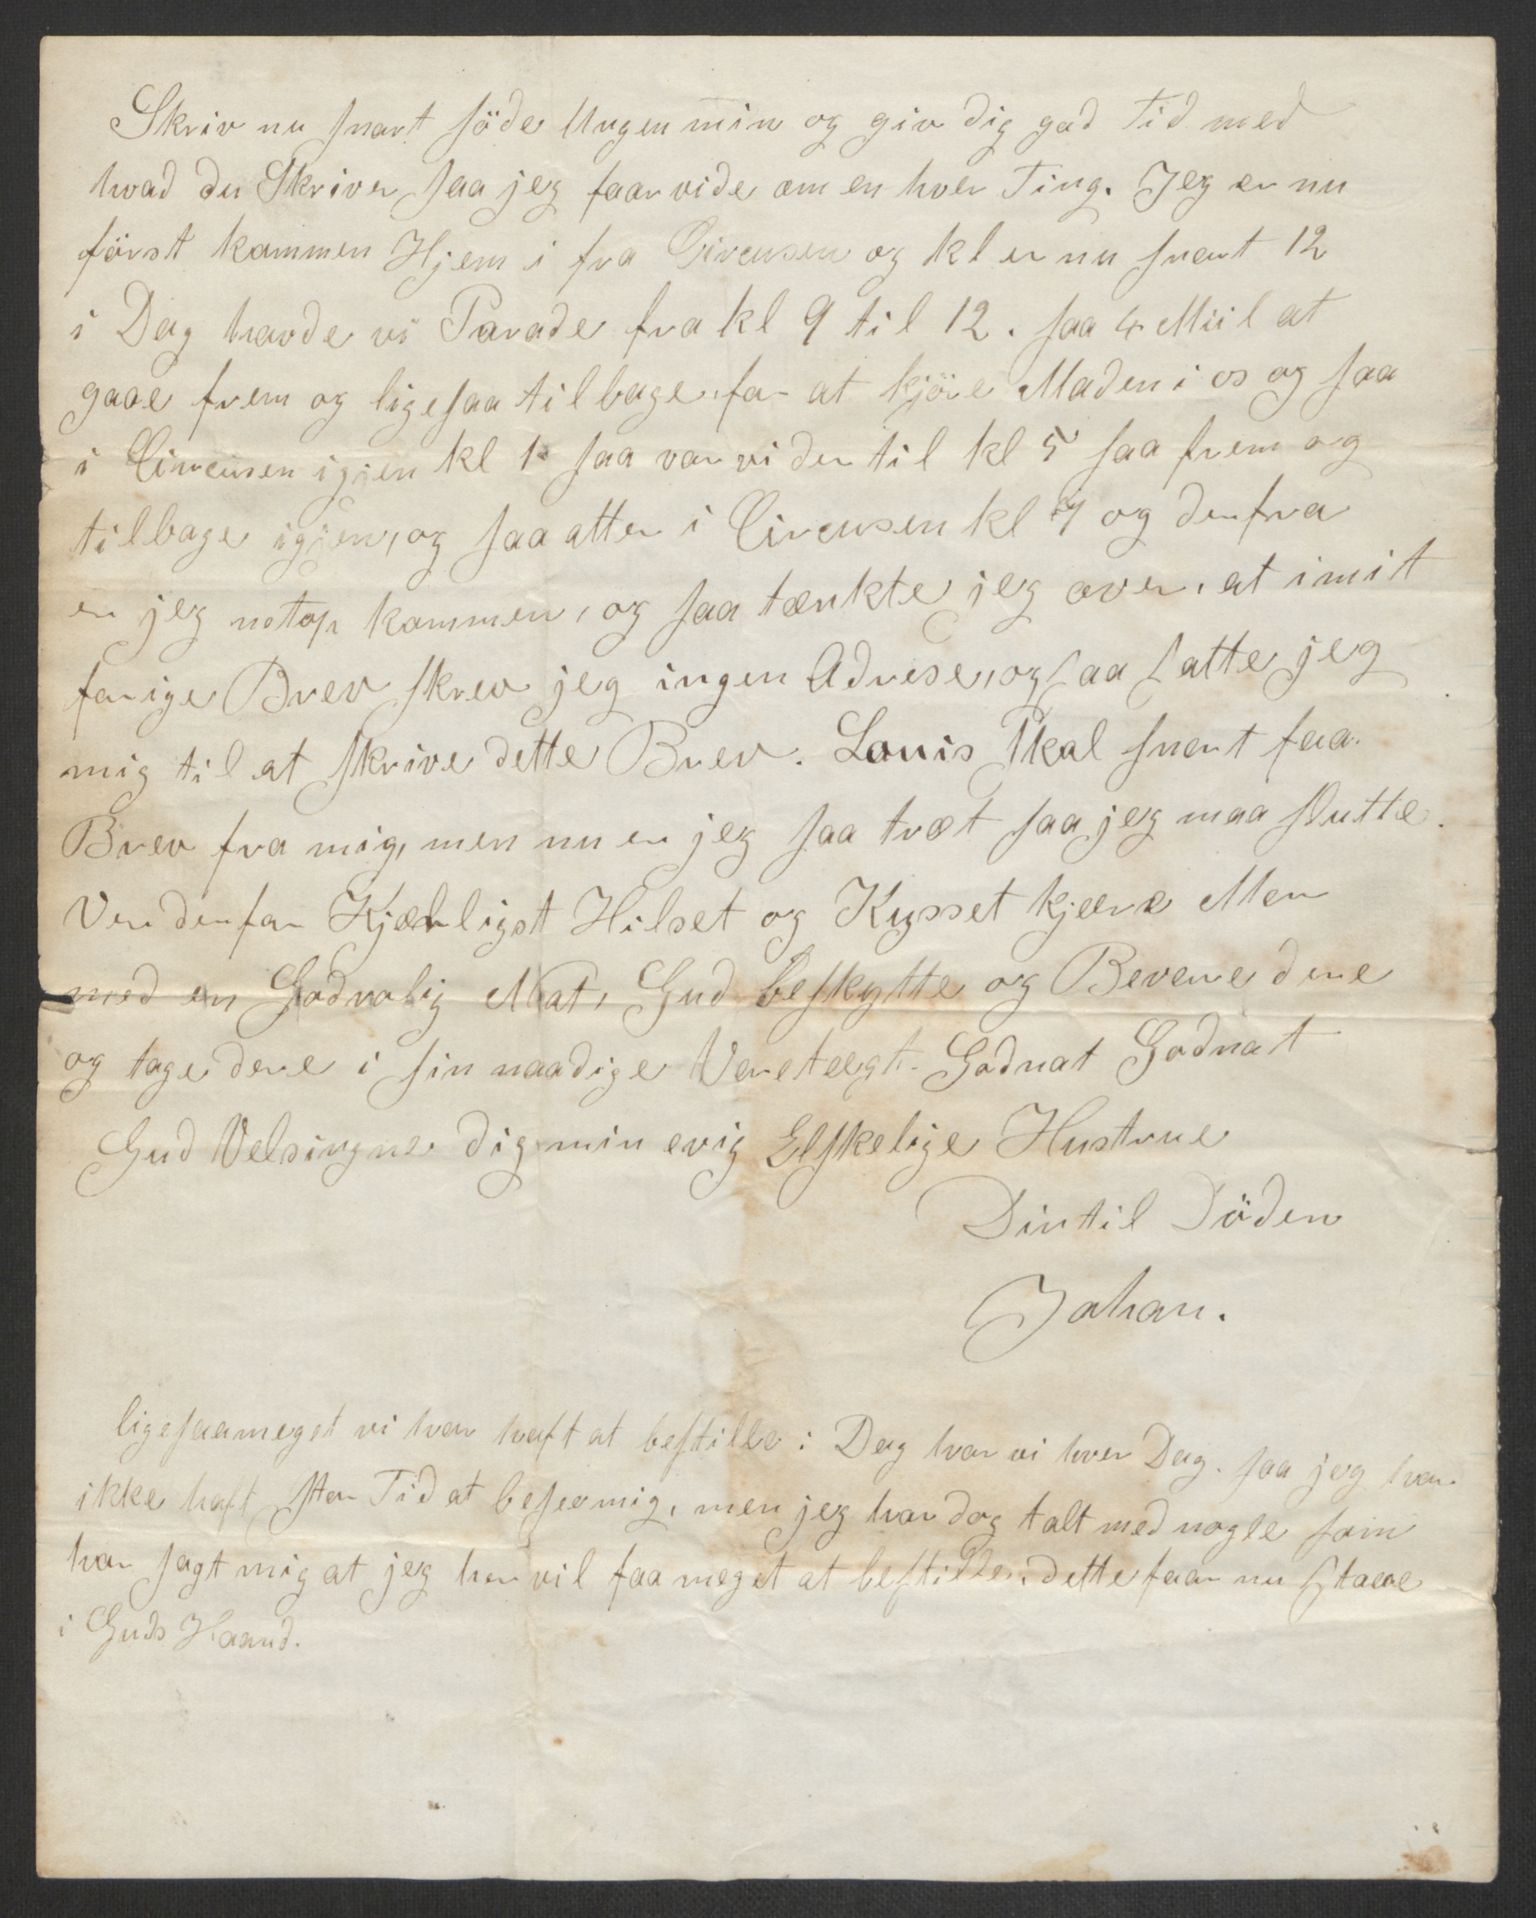 Skriv nu snart söde Ungen min og giv dig god Tid med
hvad du Skriver, saa jeg faar vide om en hver Ting. Jeg er nu
först kommen Hjem i fra Circusen og kl er nu snart 12
i Dag havde vi Parade fra kl 9 til 12. saa 4 Miil at
gaae frem og ligesaa tilbage, for at kjöre Maden i os og saa
i Circusen igjen kl 1 saa var vi der til kl 5 saa frem og
tilbage igjen, og saa atter i Circusen kl 7 og derfra
er jeg netop kommen, og saa tænkte jeg over, at i mit
forige Brev skrev jeg ingen Adrese, og saa satte jeg
mig til at skrive dette Brev. Louis skal snart faa
Brev fra mig, men nu er jeg saa træt saa jeg maa slutte.
Ver derfor Kjærligst Hilset og Kysset kjære Mer
med en Godrolig Nat, Gud beskytte og Bevare dere
og tage dere i sin naadige Varetægt. Godnat Godnat
Gud Velsingne dig min evig Elskelige Hustrue
Din til Döden
Johan.
ligesaameget vi har haft at bestille i Dag har vi hver Dag. saa jeg har
ikke haft stor Tid at besee mig, men jeg har dog talt med nogle som
har sagt mig at jeg her vil faa meget at bestille, dette faar nu staae
i Guds Haand.